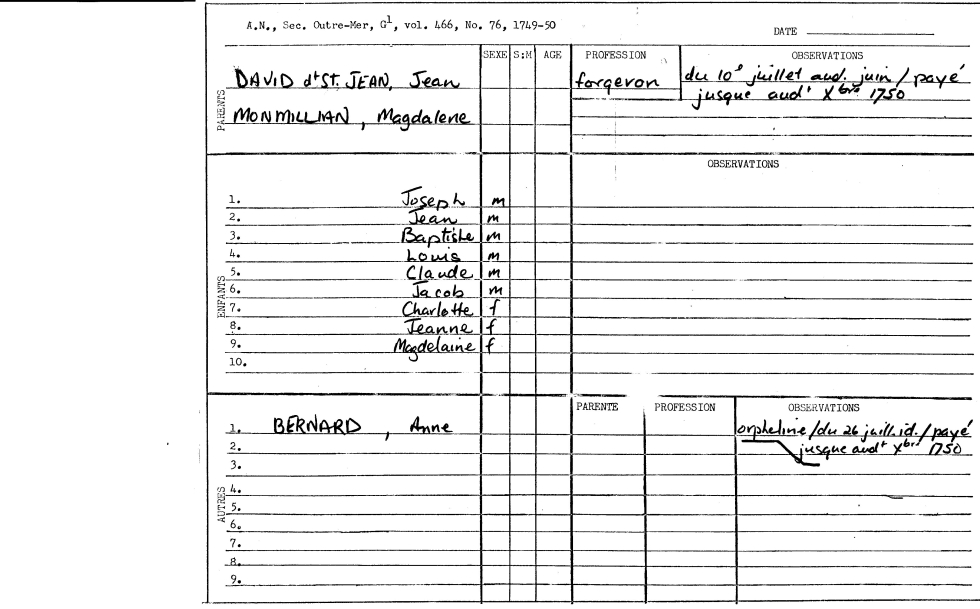 A.N., Sec. Outre-Mer, G¹, vol. 466, No. 76, 1749-50
DATE
SEXE S:M AGE PROFESSION OBSERVATIONS
PARENTS
DAVID dᵗ ST. JEAN, Jean forgeron du 10ᵉ juillet aud. juin / payé
jusque audᵗ Xbre 1750
MONMILLIAN, Magdalene
OBSERVATIONS
ENFANTS
1. Joseph m
2. Jean m
3. Baptiste m
4. Louis m
5. Claude m
6. Jacob m
7. Charlotte f
8. Jeanne f
9. Magdelaine f
10.
PARENTE PROFESSION OBSERVATIONS
AUTRES
1. BERNARD, Anne orpheline / du 26 juill. id. / payé
2. jusque audᵗ Xbre 1750
3.
4.
5.
6.
7.
8.
9.